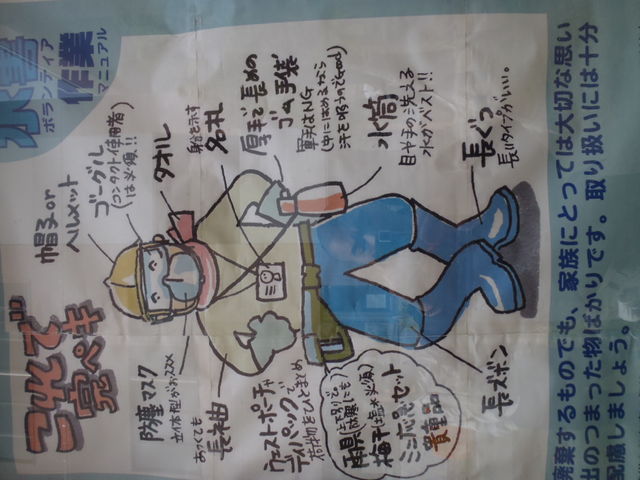 水害
ボランティア
作業
マニュアル
これで
完ペキ
帽子or
ヘルメット
ゴーグル
(コンタクト使用者
は必須!!)
タオル
身分を示す
名札
厚手で長めの
ゴム手袋
軍手はNG
(中にはめるなら
汗を吸うのでGood)
水筒
目や手の洗える
水がベスト!!
長ぐつ
長いタイプがいい。
防塵マスク
立体型がおススメ
あつくても
長袖
ウェストポーチや
デイパックで
荷物をひとまとめ
雨具
梅干(塩・水必須)
ミニ応急セット
貴重品
長ズボン
廃棄するものでも、家族にとっては大切な思い
出のつまった物ばかりです。取り扱いには十分
配慮しましょう。